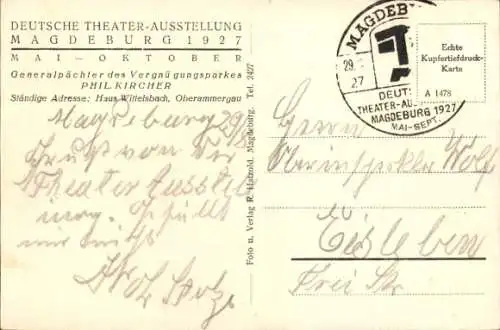 DEUTSCHE THEATER-AUSSTELLUNG
MAGDEBURG 1927
MAI – OKTOBER
Generalpächter des Vergnügungsparkes
PHIL. KIRCHER
Ständige Adresse: Haus Wittelsbach, Oberammergau
Magdeburg 29/
Gruß von der
Theater Ausstel
lung. Gefällt
mir
Foto u. Verlag R. Hatzold, Magdeburg. Tel. 2427
MAGDEB
29.
27
DEUT
THEATER-AUS
MAGDEBURG 1927
MAI-SEPT.
Echte
Kupfertiefdruck-
Karte
A 1478
Herrn
Oberinspektor Wolf
Eisleben
Frei Str